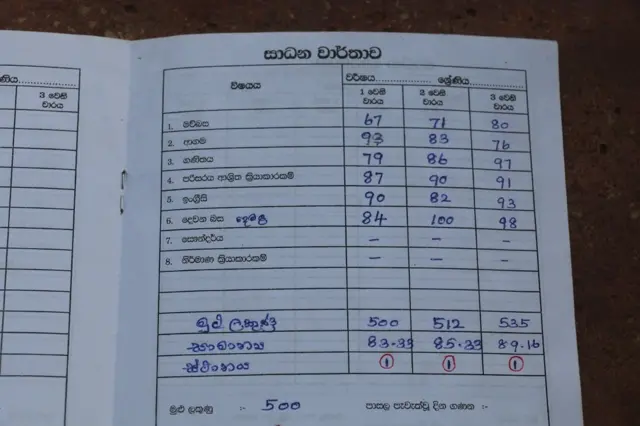 සාධන වාර්තාව
ණිය..................
3 වෙනි වාරය
විෂයය
වර්ෂය..................... ශ්‍රේණිය.....................
1 වෙනි වාරය
2 වෙනි වාරය
3 වෙනි වාරය
1. මව්බස 67 71 80
2. ආගම 93 83 76
3. ගණිතය 79 86 97
4. පරිසරය ආශ්‍රිත ක්‍රියාකාරකම් 87 90 91
5. ඉංග්‍රීසි 90 82 93
6. දෙවන බස දෙමළ 84 100 98
7. සෞන්දර්ය - - -
8. නිර්මාණ ක්‍රියාකාරකම් - - -
මුළු ලකුණු 500 512 535
සාමාන්‍යය 83.33 85.33 89.16
ස්ථානය 1 1 1
මුළු ලකුණු :- 500 පාසල පැවැත්වූ දින ගණන :-